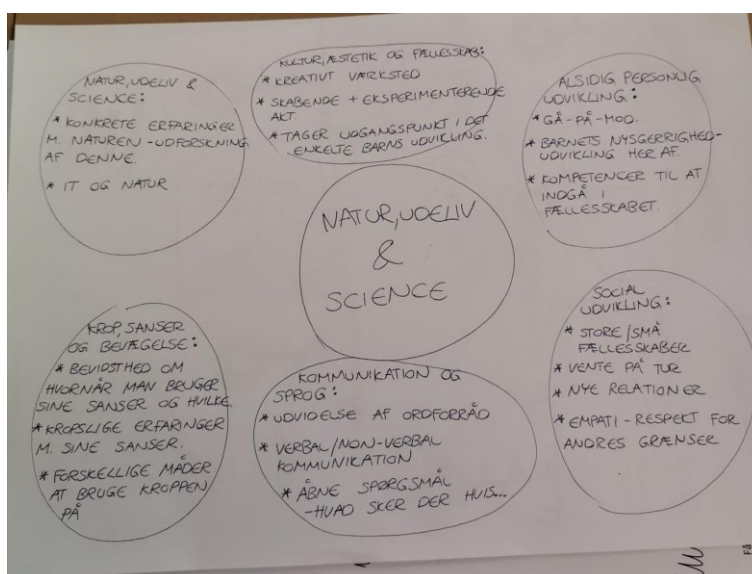 NATUR, UDELIV &
SCIENCE:
* KONKRETE ERFARINGER
M. NATUREN - UDFORSKNING
AF DENNE.
* IT OG NATUR
KULTUR, ÆSTETIK OG FÆLLESSKAB:
* KREATIVT VÆRKSTED
* SKABENDE + EKSPERIMENTERENDE
AKT.
* TAGER UDGANGSPUNKT I DET
ENKELTE BARNS UDVIKLING.
ALSIDIG PERSONLIG
UDVIKLING:
* GÅ-PÅ-MOD.
* BARNETS NYSGERRIGHED-
UDVIKLING HER AF.
* KOMPETENCER TIL AT
INDGÅ I
FÆLLESSKABET.
NATUR, UDELIV
&
SCIENCE
KROP, SANSER
OG BEVÆGELSE:
* BEVIDSTHED OM
HVORNÅR MAN BRUGER
SINE SANSER OG HVILKE.
* KROPSLIGE ERFARINGER
M. SINE SANSER.
* FORSKELLIGE MÅDER
AT BRUGE KROPPEN
PÅ
KOMMUNIKATION OG
SPROG:
* UDVIDELSE AF ORDFORRÅD
* VERBAL/NON-VERBAL
KOMMUNIKATION
* ÅBNE SPØRGSMÅL
- HVAD SKER DER HVIS...
SOCIAL
UDVIKLING:
* STORE/SMÅ
FÆLLESSKABER
* VENTE PÅ TUR
* NYE RELATIONER
* EMPATI - RESPEKT FOR
ANDRES GRÆNSER